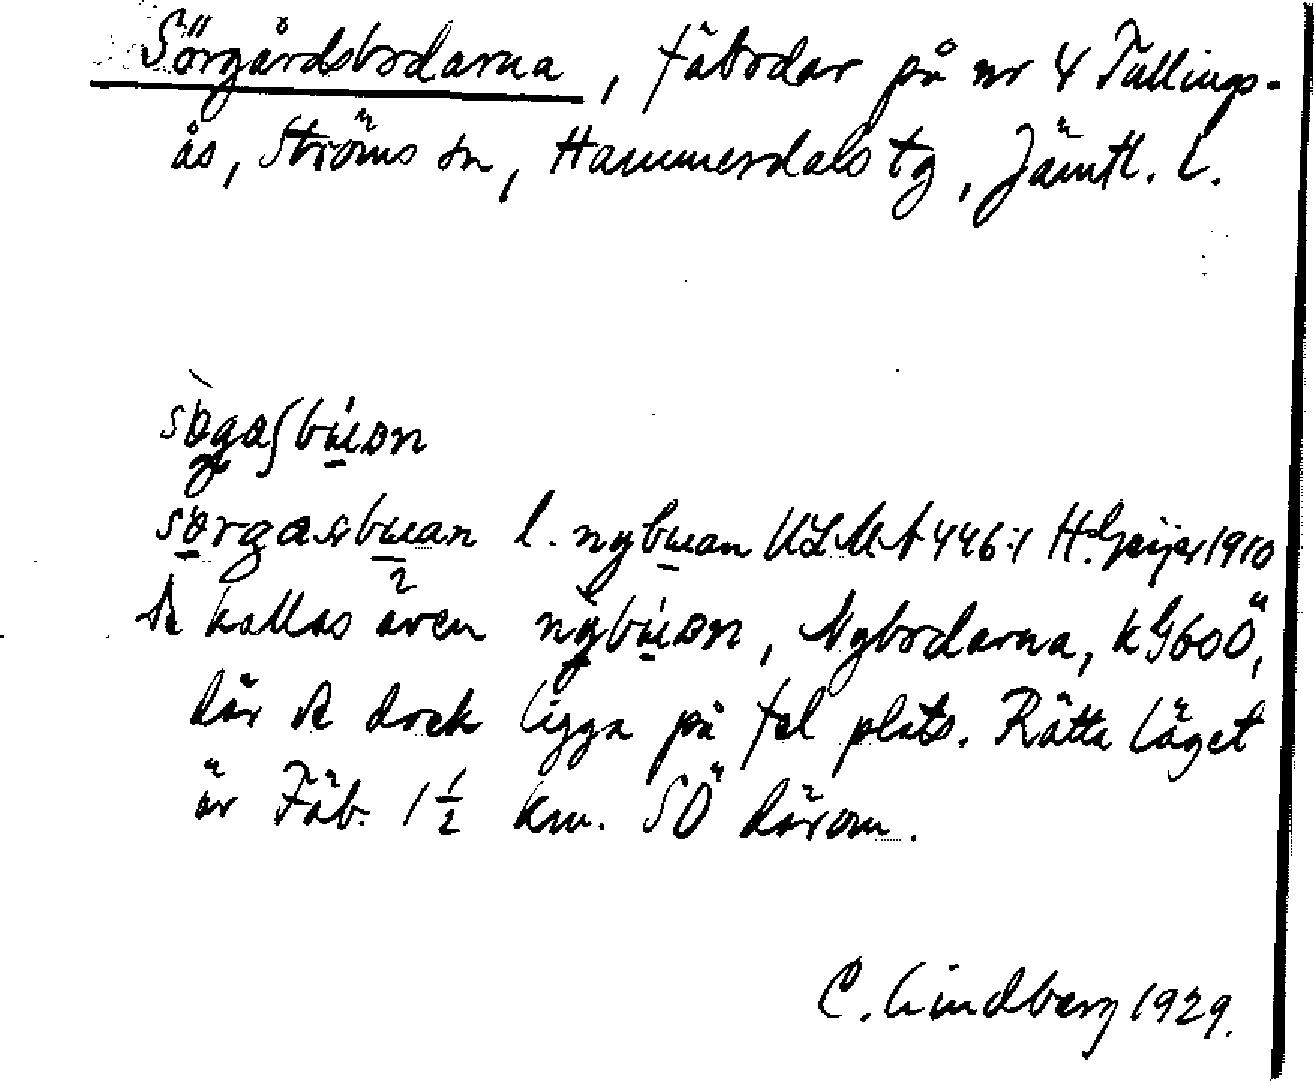 Sörgårdsbodarna, fäbodar på nr 4 Tullings-
ås, Ströms sn, Hammerdals tg, Jämtl. l.
sørgasbuan l. nybuan ULMA 446:1 H. Geijer 1910
De kallas även nybuan, Nybodarna, k G60Ö,
där de dock ligga på fel plats. Rätta läget
är Fäb. 1 1/2 km. SÖ därom.
C. Lindberg 1929.